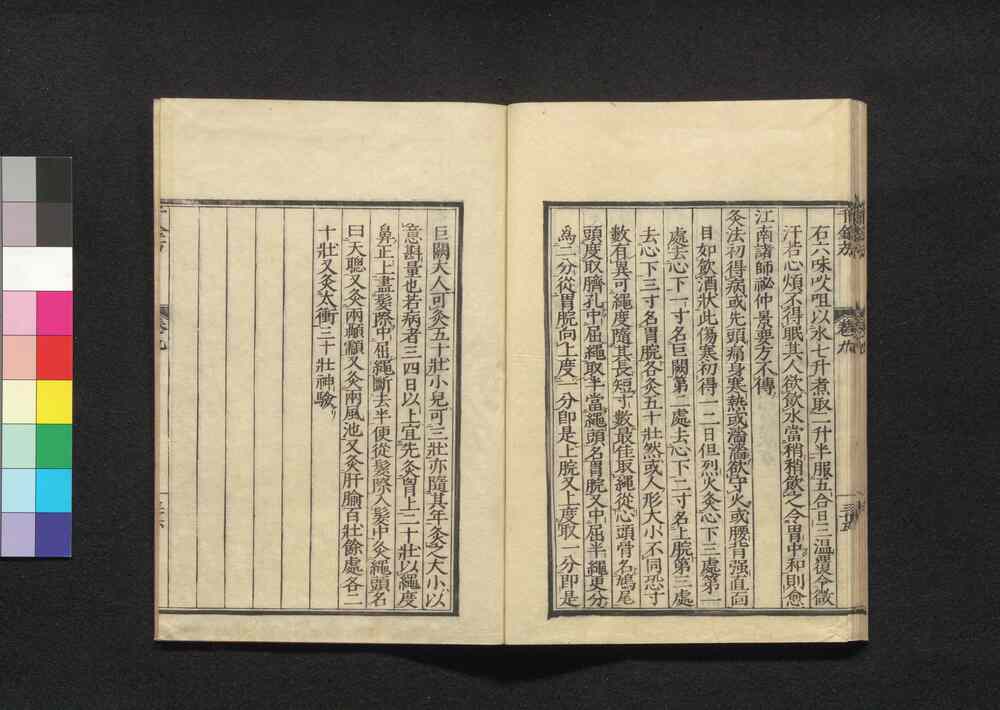 千金方 卷九 三十五
右六味㕮咀以水七升煮取二升半服五合日三溫覆令微
汗若心煩不得眠其人欲飲水當稍稍飲之令胃中和則愈
江南諸師祕仲景要方不傳
灸法初得病或先頭痛身寒熱或濇濇欲守火或腰背强直面
目如飲酒狀此傷寒初得一二日但烈火灸心下三處第一
處去心下一寸名巨闕第二處去心下二寸名上脘第三處
去心下三寸名胃脘各灸五十壯然或人形大小不同恐寸
數有異可繩度隨其長短寸數最佳取繩從心頭骨名鳩尾
頭度取臍孔中屈繩取半當繩頭名胃脘又中屈半繩更分
爲二分從胃脘向上度一分即是上脘又上度取一分即是
巨闕大人可灸五十壯小兒可三壯亦隨其年灸之大小以
意斟量也若病者三四日以上宜先灸胷上二十壯以繩度
鼻正上盡髮際中屈繩斷去半便從髮際入髮中灸繩頭名
曰天聰又灸兩顳顬又灸兩風池又灸肝腧百壯餘處各二
十壯又灸太衝三十壯神驗